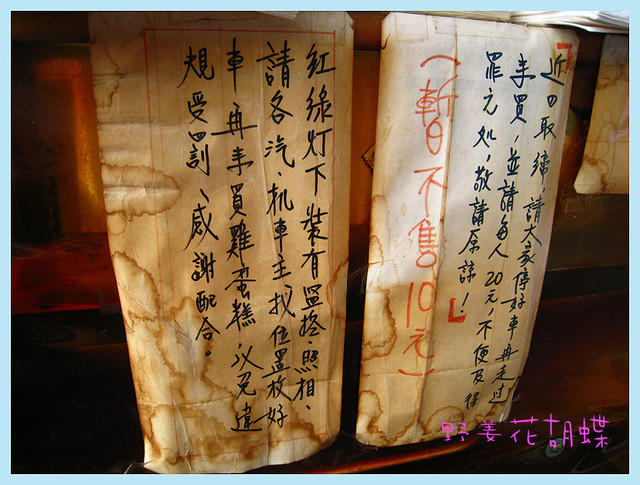 近日取締，請大家停好車再走過
來買，並請每人20元，不便及得
罪之処，敬請原諒！
（暫不售10元）
紅綠灯下裝有監控、照相、
請各汽、机車主找位置放好
車再來買雞蛋糕，以免違
規受罰、感謝配合。
野姜花胡蝶